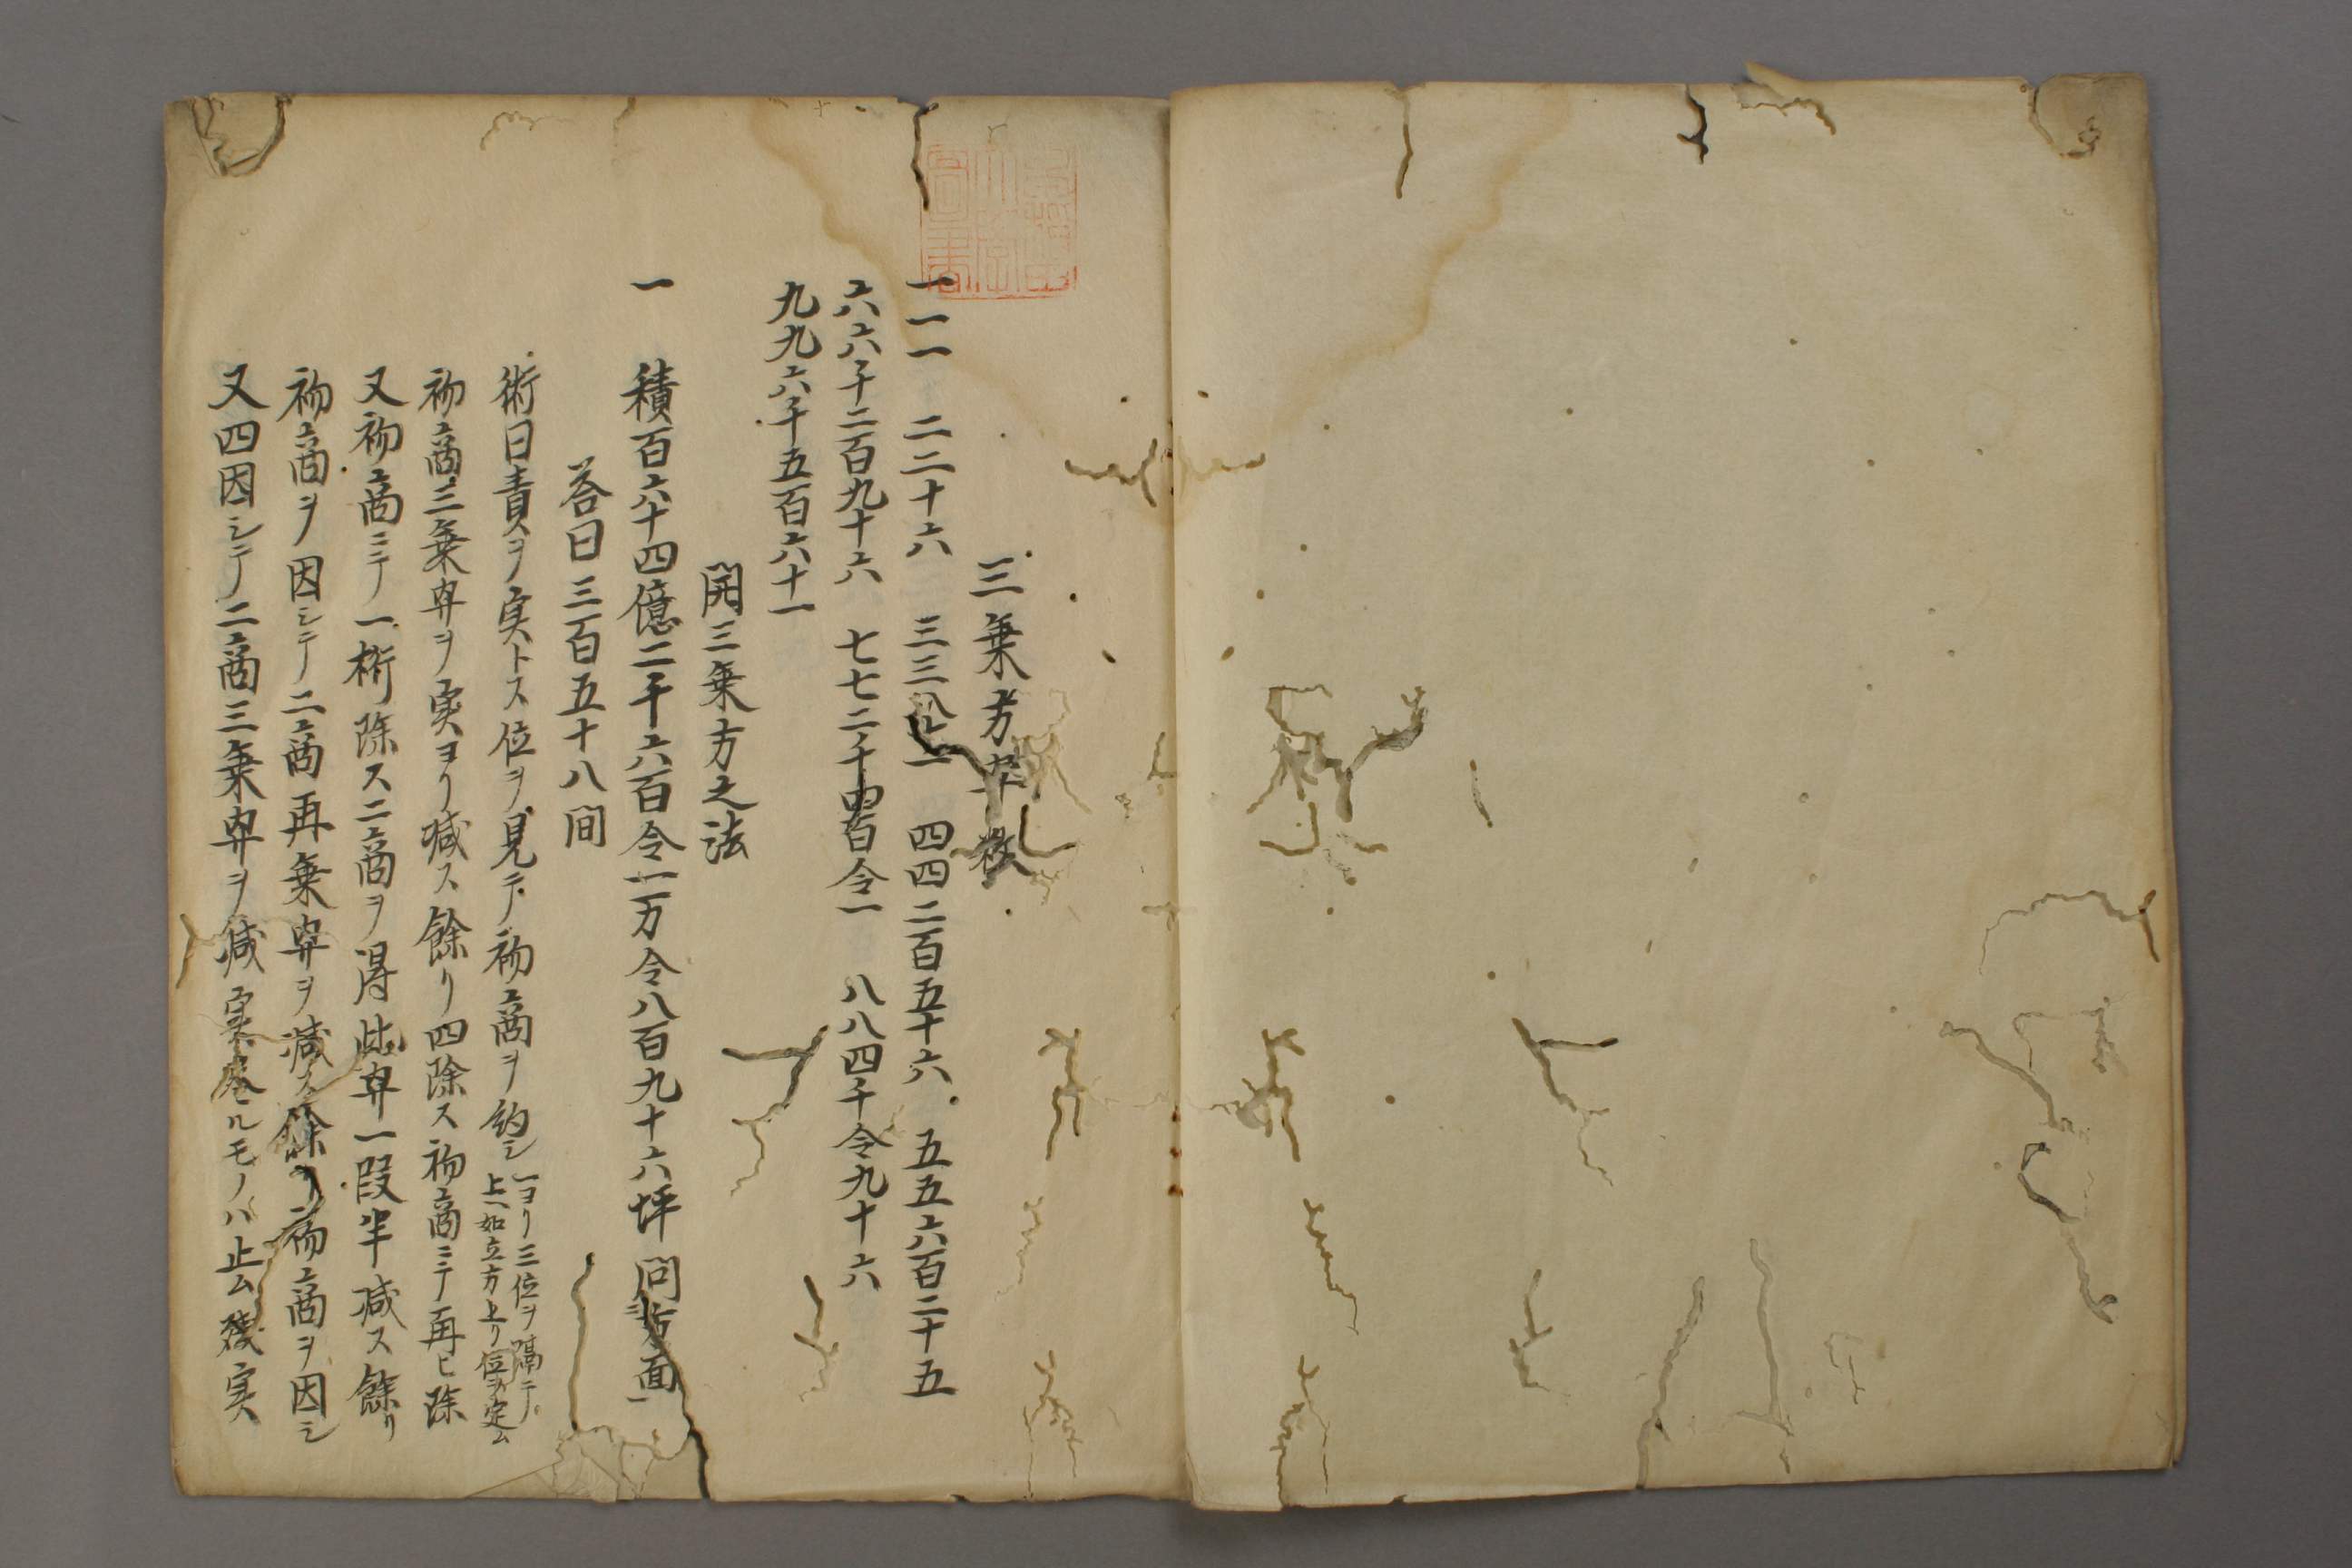 三乗方 根
一一一 二二十六 三三八十一 四四二百五十六 五五六百二十五
六六千二百九十六 七七二千四百令一 八八四千令九十六
九九六千五百六十一
開三乗方之法
一 積百六十四億二千六百令一万令八百九十六坪 問方面
答曰三百五十八間
術曰責ヲ実トス位ヲ見テ初商ヲ約シ
一ヨリ三位ヲ隔テ
上一如立方上リ位ヲ定ム
初商三乗巾ヲ実ヨリ减ス餘リ四除ス初商ニテ再ヒ除
又初商ニテ一桁除ス二商ヲ得此巾一段半减ス餘リ
初商ヲ因シテ二商再乗巾ヲ减ス餘リ初商ヲ因シ
又四因シテ二商三乗巾ヲ减実 ルモノハ止ム残実